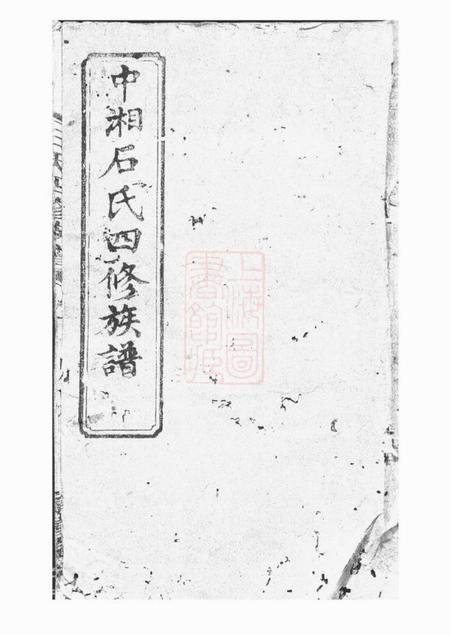 中湘石氏四修族譜
上海圖
書館藏